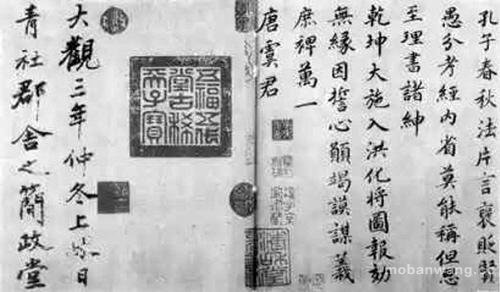 孔子春秋法片言褒貶賢
愚分考經内省莫能稱但思
至理書諸紳
乾坤大施入洪化將圖報効
無緣因誓心願竭謨謀義
庶裨萬一
唐虞君
五福五代
堂古稀
天子寶
大觀三年仲冬上日
青社郡舍之簡政堂
mobanwang.co